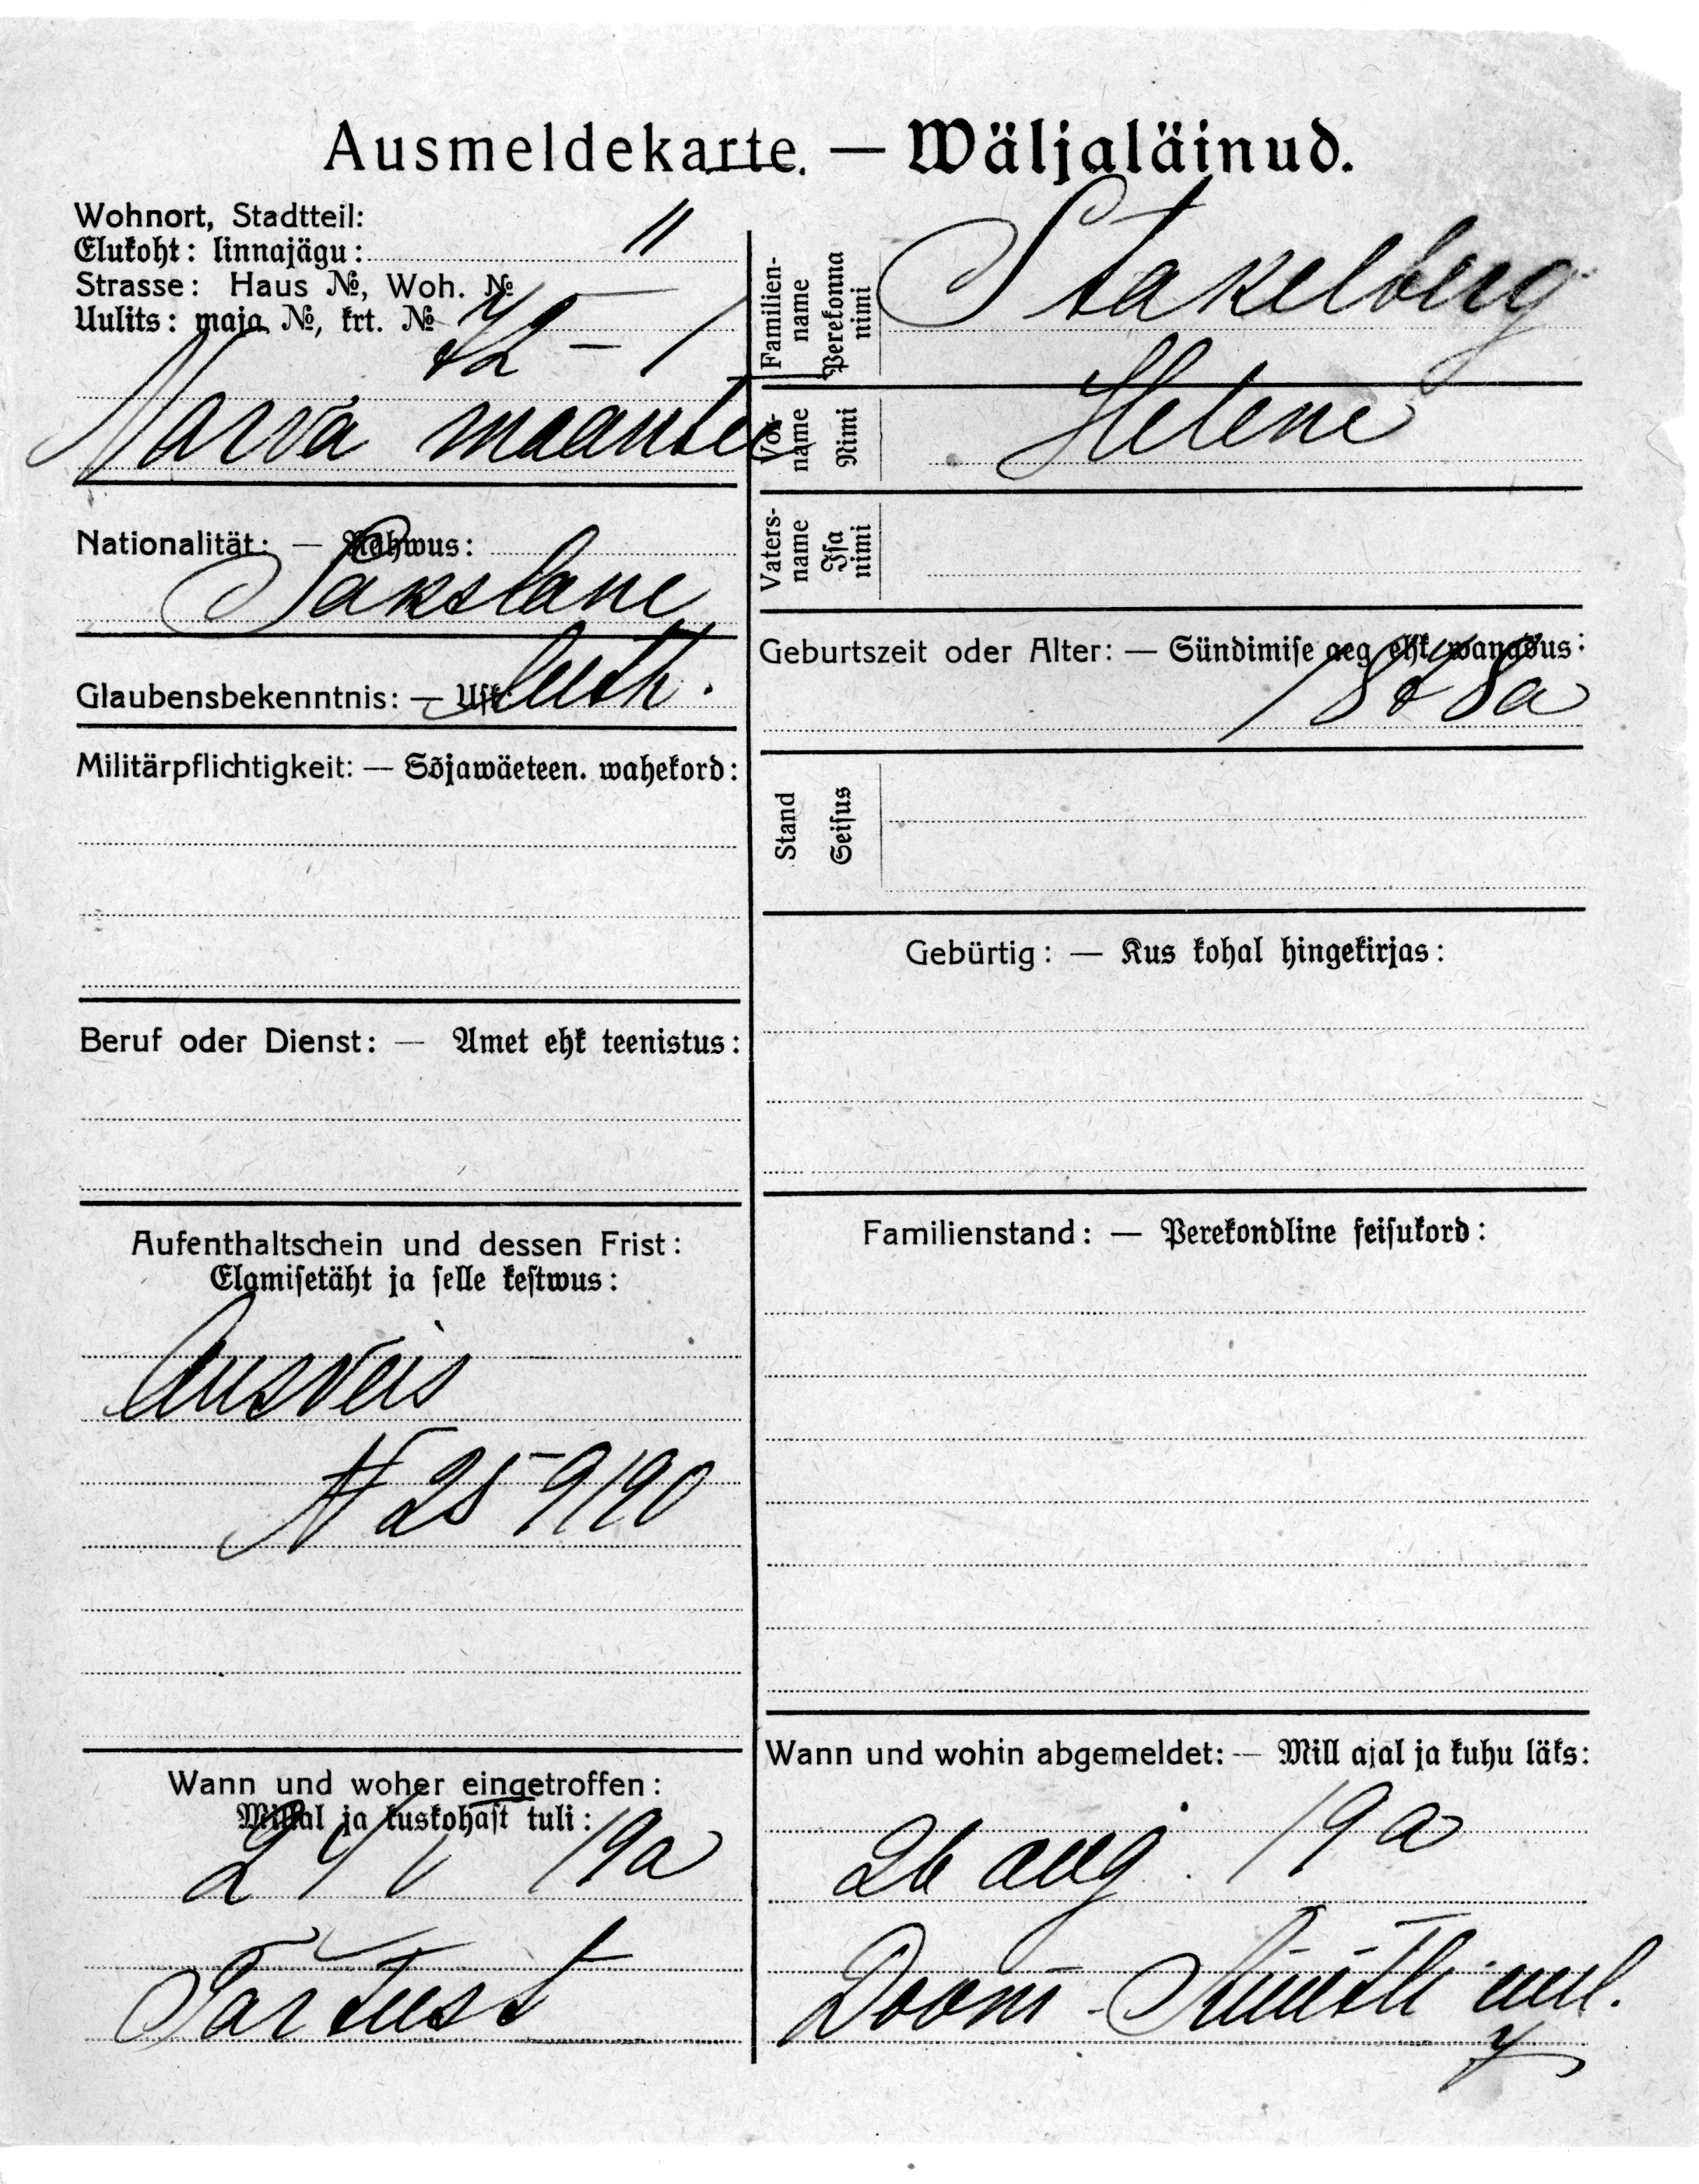 Ausmeldekarte. — Wäljaläinud.
Wohnort, Stadtteil:
Elukoht: linnajägu: II
Strasse: Haus №, Woh. №
Uulits: maja №, krt. № 42 – 1
Narva maantee
Nationalität: — Rahwus:
Sakslane
Glaubensbekenntnis: — Usk: luth.
Militärpflichtigkeit: — Sõjawäeteen. wahekord:
Beruf oder Dienst: — Amet ehk teenistus:
Aufenthaltschein und dessen Frist:
Elamisetäht ja selle kestwus:
Ausveis
N 25 9190
Wann und woher eingetroffen:
Millal ja kuskohast tuli:
24/V 19a
Tartust
Familien-name Perekonna nimi Stakelberg
Vor-name Nimi Helene
Vaters-name Isa nimi
Geburtszeit oder Alter: — Sündimise aeg ehk wanadus:
Stand Seisus
Gebürtig: — Kus kohal hingekirjas:
Familienstand: — Perekondline seisukord:
Wann und wohin abgemeldet: — Mill ajal ja kuhu läks:
26 aug. 19a
Doom-Rüütli uul.
4